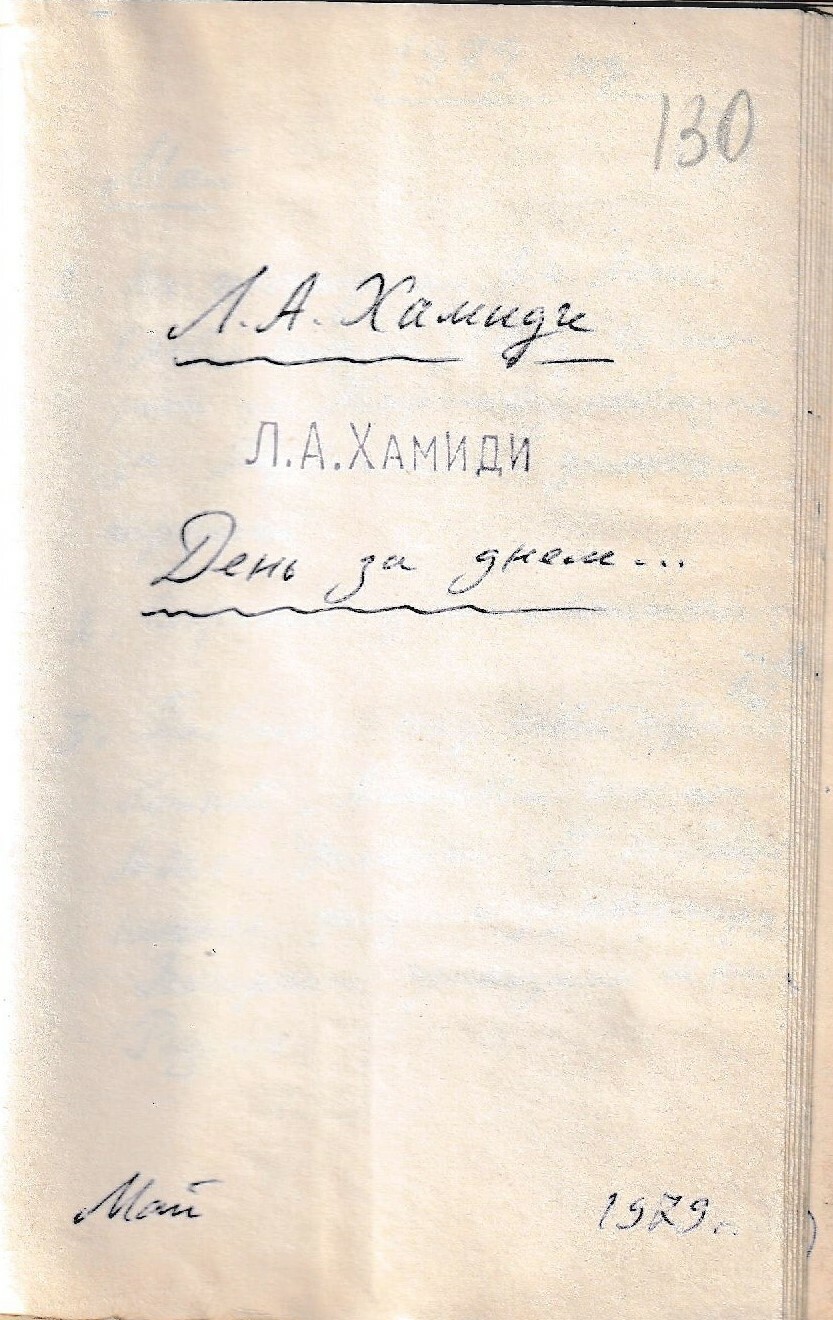 130
Л.А.Хамиди
Л.А.ХАМИДИ
День за днем...
Май 1979г.